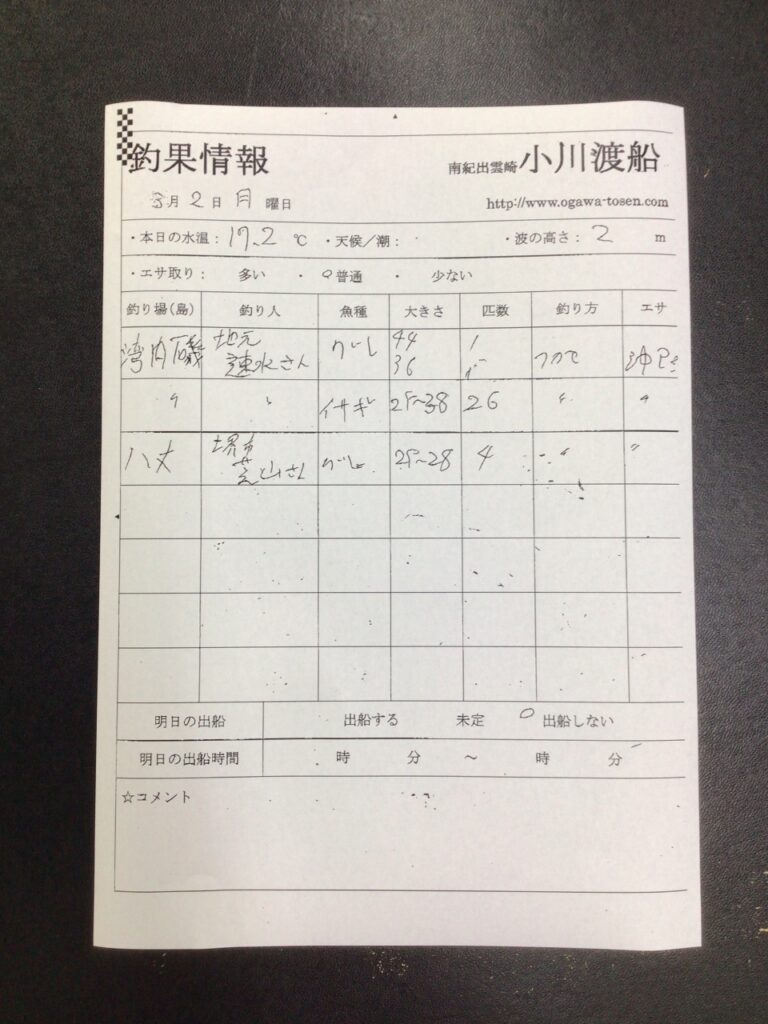 釣果情報
南紀出雲崎 小川渡船
3月 2日 月 曜日
http://www.ogawa-tosen.com
・本日の水温: 17.2 ℃ ・天候/潮: ・波の高さ: 2 m
・エサ取り: 多い ・ ○普通 ・ 少ない
釣り場(島) 釣り人 魚種 大きさ 匹数 釣り方 エサ
湾内磯 地元 速水さん グレ 44 36 1
〃 〃 イサギ 25~38 26 〃 〃
八丈 堺市 芝山さん グレ 25~28 4 〃 〃
明日の出船 出船する 未定 ○ 出船しない
明日の出船時間 時 分 ~ 時 分
☆コメント